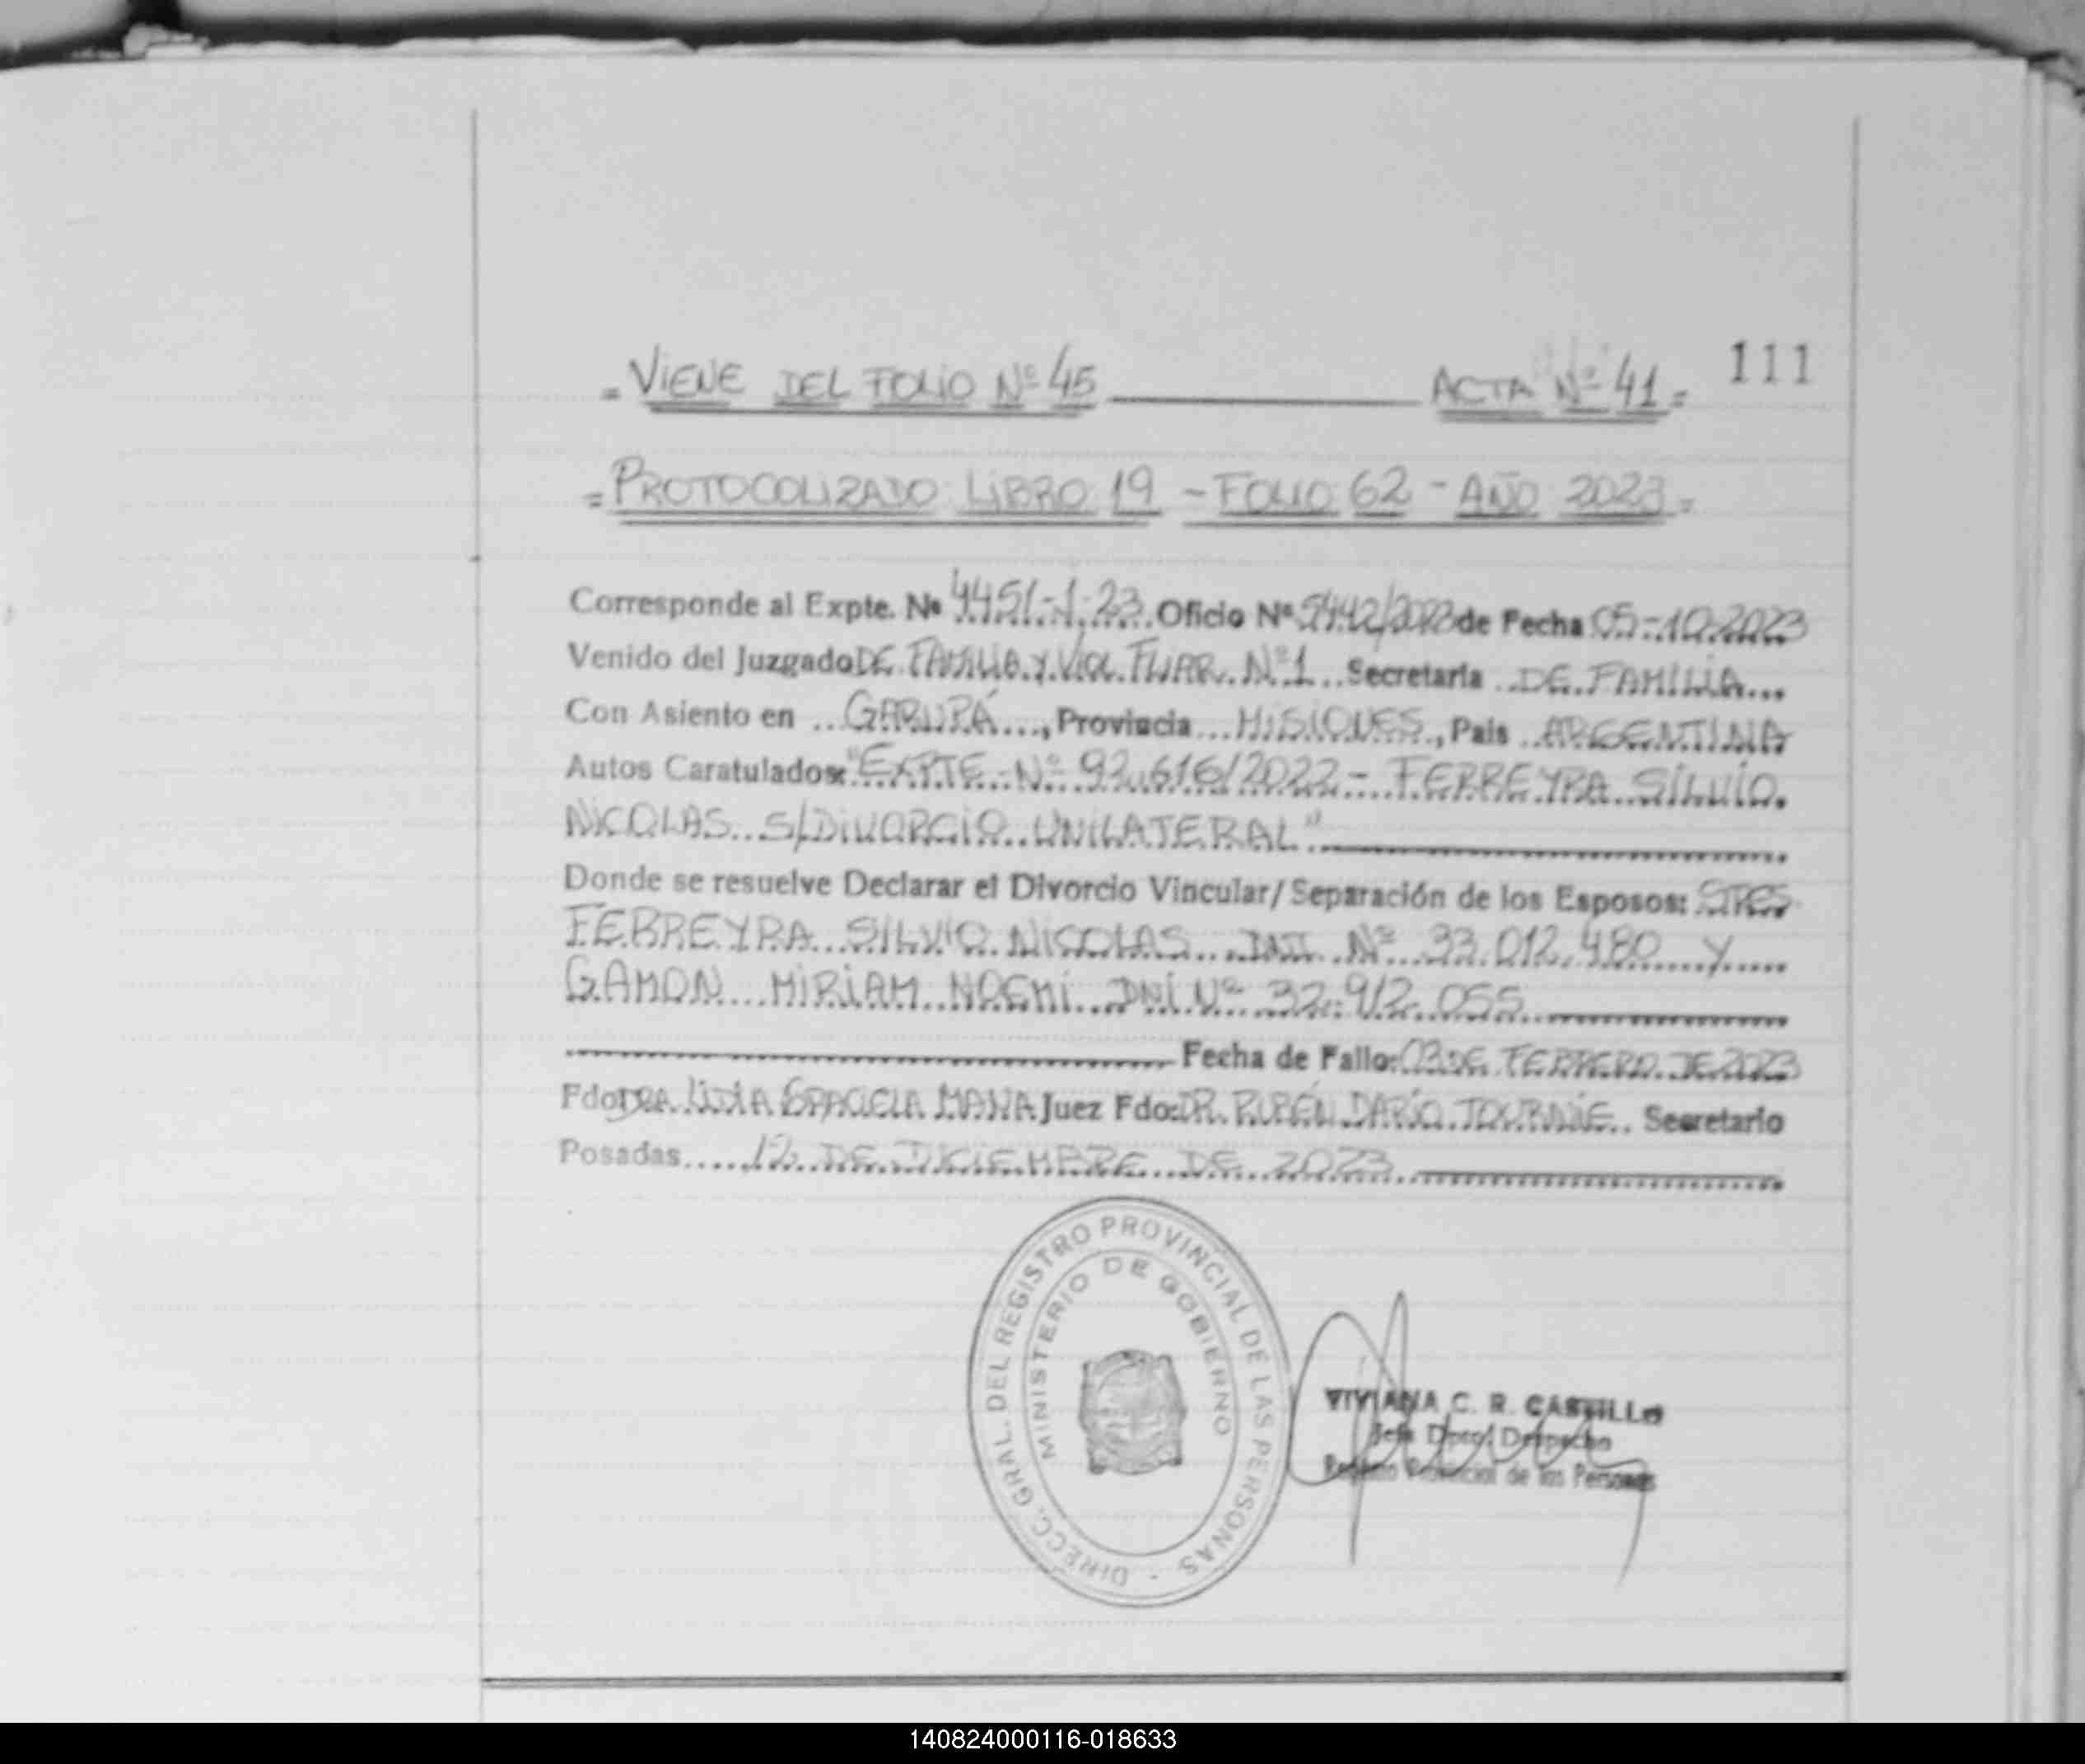 = VIENE DEL FOLIO Nº 45 ACTA Nº 41 = 111
= PROTOCOLIZADO LIBRO 19 - FOLIO 62 - AÑO 2023 =
Corresponde al Expte. Nº 4451-1-23 Oficio Nº 5442/2023 de Fecha 05-10-2023
Venido del Juzgado DE FAMILIA Y VIOL. FLIAR. Nº 1 Secretaria DE FAMILIA
Con Asiento en GARUPÁ, Provincia MISIONES, Pais ARGENTINA
Autos Caratulados: "EXPTE. Nº 92.616/2022 - FERREYRA SILVIO
NICOLAS S/DIVORCIO UNILATERAL"
Donde se resuelve Declarar el Divorcio Vincular/Separación de los Esposos:
FERREYRA SILVIO NICOLAS DNI Nº 33.012.480 Y
GAMON MIRIAM NOEMÍ DNI Nº 32.912.055
Fecha de Fallo: 03 DE FEBRERO DE 2023
Fdo: DRA. LIDIA GRACIELA Juez Fdo: DR. RUBÉN DARÍO Secretario
Posadas 12 DE DICIEMBRE DE 2023
DIRECC. GRAL. DEL REGISTRO PROVINCIAL DE LAS PERSONAS
MINISTERIO DE GOBIERNO
VIVIANA C. R. CASTILLO
Jefa Dpto. Despacho
Registro Provincial de las Personas
140824000116-018633